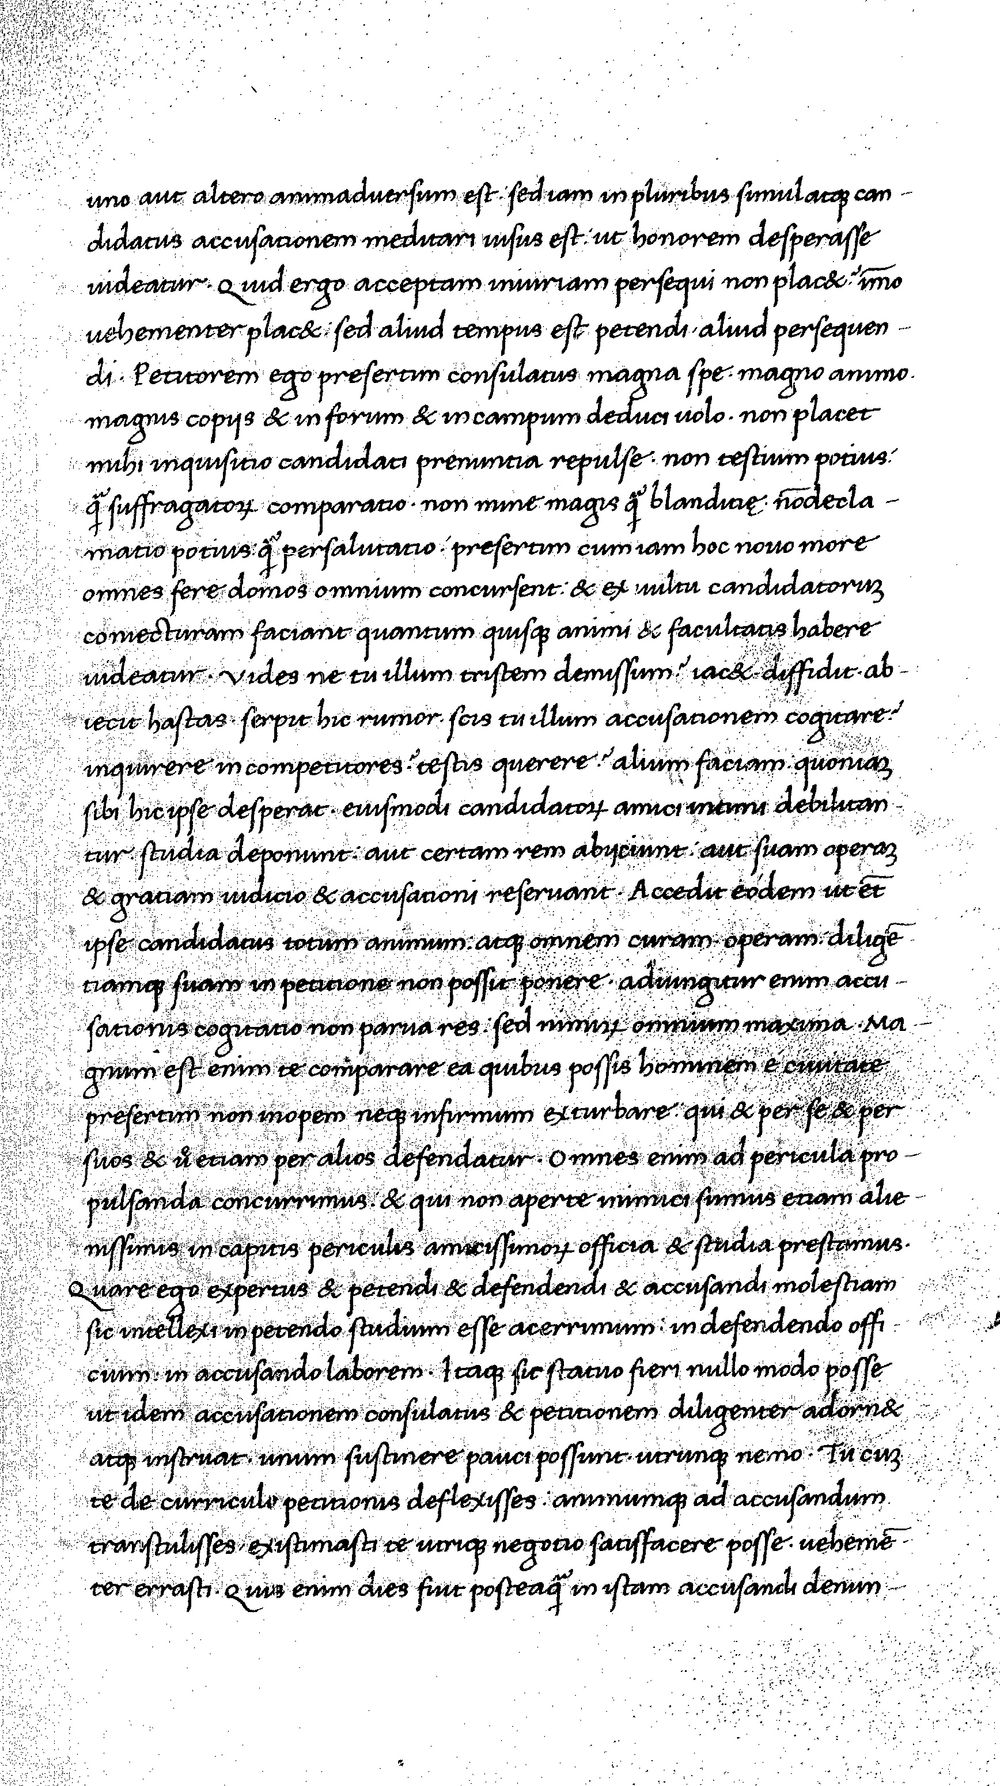 uno aut altero animaduersum est · sed iam in pluribus simul atqꝫ can –
didatus accusationem meditari uisus est : ut honorem desperasse
uideatur · Quid ergo acceptam iniuriam persequi non plac& ? im̄o
uehementer plac& : sed aliud tempus est petendi · aliud persequen –
di · Petitorem ego presertim consulatus magna spe · magno animo ·
magnis copijs & in forum & in campum deduci uolo · non placet
mihi inquisitio candidati prenuntia repulse · non testium potius :
qᷓ suffragatoꝝ comparatio · non mine magis qᷓ blanditię · nōdecla –
matio potius qᷓ persalutatio : presertim cum iam hoc nouo more
omnes fere domos omnium concursent : & ex uultu candidatoruꝫ
coniecturam faciant quantum quisqꝫ animi & facultatis habere
uideatur · Vides ne tu illum tristem demissum ? iac& · diffidit · ab –
iecit hastas · serpit hic rumor · scis tu illum accusationem cogitare ?
inquirere in competitores ? testis querere ? alium faciam quoniaꝫ
sibi hic ipse desperat · eiusmodi candidatoꝝ amici intimi debilitan –
tur studia deponunt : aut certam rem abijciunt : aut suam operaꝫ
& gratiam iudicio & accusationi reseruant · Accedit eodem ut et̄
ipse candidatus totum animum · atqꝫ omnem curam · operam · diligē –
tiamqꝫ suam in petitione non possit ponere · adiungitur enim accu –
sationis cogitatio non parua res : sed nimiꝝ omnium maxima · Ma –
gnum est enim te comparare ea quibus possis hominem e ciuitate
presertim non inopem neqꝫ infirmum exturbare : qui & per se & per
suos & u̇ etiam per alios defendatur · Omnes enim ad pericula pro –
pulsanda concurrimus : & qui non aperte inimici sumus etiam alie –
nissimis in capitis periculis amicissimoꝝ officia & studia prestamus ·
Quare ego expertus & petendi & defendendi & accusandi molestiam
sic intellexi in petendo studium esse acerrimum : in defendendo offi –
cium : in accusando laborem · Itaqꝫ sic statuo fieri nullo modo posse
ut idem accusationem consulatus & petitionem diligenter adorn&
atqꝫ instruat · unum sustinere pauci possunt · utrunqꝫ nemo · Tu cuꝫ
te de curriculo petitionis deflexisses : animumqꝫ ad accusandum
transtulisses existimasti te utriqꝫ negotio satisfacere posse · uehemē –
ter errasti · Quis enim dies fuit posteaqᷓ in istam accusandi denun –